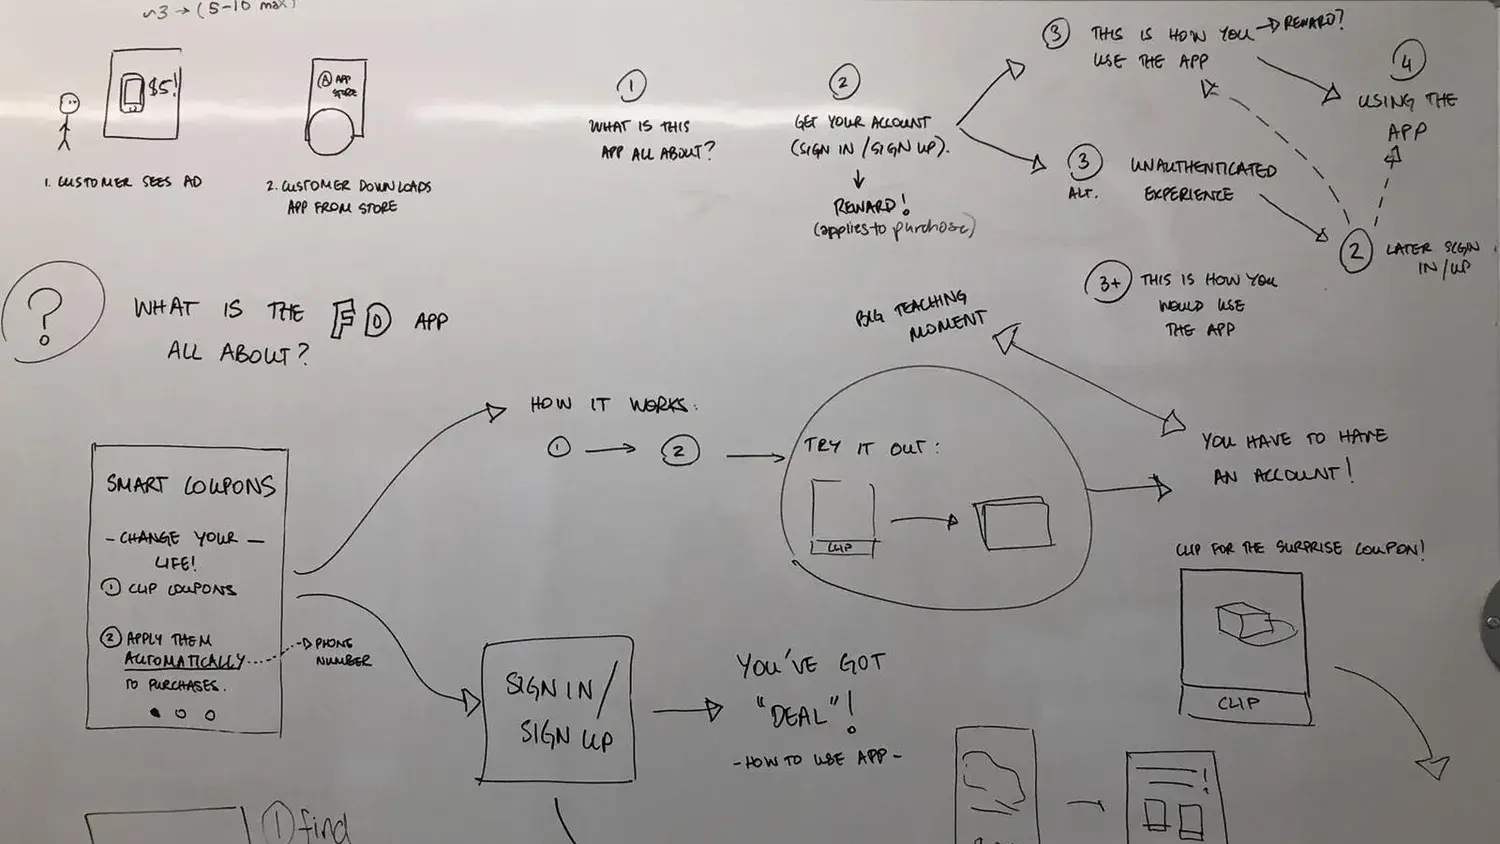 ~3 → (5-10 max)
$5!
1. CUSTOMER SEES AD
A APP
STORE
2. CUSTOMER DOWNLOADS
APP FROM STORE
1
WHAT IS THIS
APP ALL ABOUT?
2
GET YOUR ACCOUNT
(SIGN IN/SIGN UP).
REWARD!
(applies to purchase)
3 THIS IS HOW YOU → REWARD?
USE THE APP
4
USING THE
APP
3
ALT.
UNAUTHENTICATED
EXPERIENCE
2 LATER SIGN
IN/UP
3+ THIS IS HOW YOU
WOULD USE
THE APP
? WHAT IS THE FD APP
ALL ABOUT?
BIG TEACHING
MOMENT
HOW IT WORKS:
1 → 2
TRY IT OUT:
CLIP
YOU HAVE TO HAVE
AN ACCOUNT!
SMART COUPONS
- CHANGE YOUR -
LIFE!
1 CLIP COUPONS
2 APPLY THEM
AUTOMATICALLY
TO PURCHASES.
PHONE
NUMBER
SIGN IN/
SIGN UP
YOU'VE GOT
"DEAL"!
- HOW TO USE APP -
CLIP FOR THE SURPRISE COUPON!
CLIP
1 find